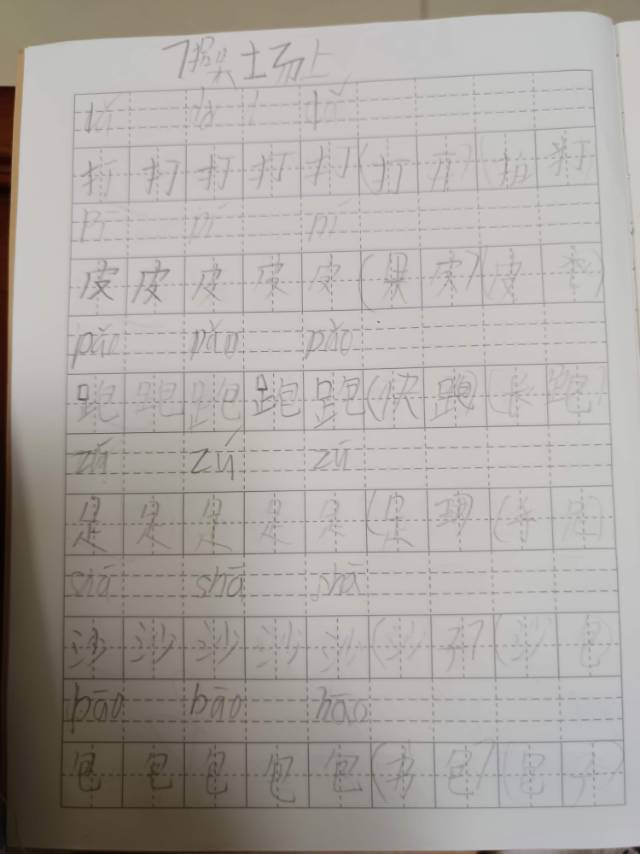 7操场上
dǎ dǎ dǎ
打 打 打 打 打 (打 开) (拍 打)
pí pí pí
皮 皮 皮 皮 皮 (果 皮) (皮
pǎo pǎo pǎo
跑 跑 跑 跑 跑 (快 跑) (长 跑)
zú zú zú
足 足 足 足 足 (足 球) (手 足)
shā shā shā
沙 沙 沙 沙 沙 (沙 子) (沙 包)
bāo bāo bāo
包 包 包 包 包 (书 包) (包 子)